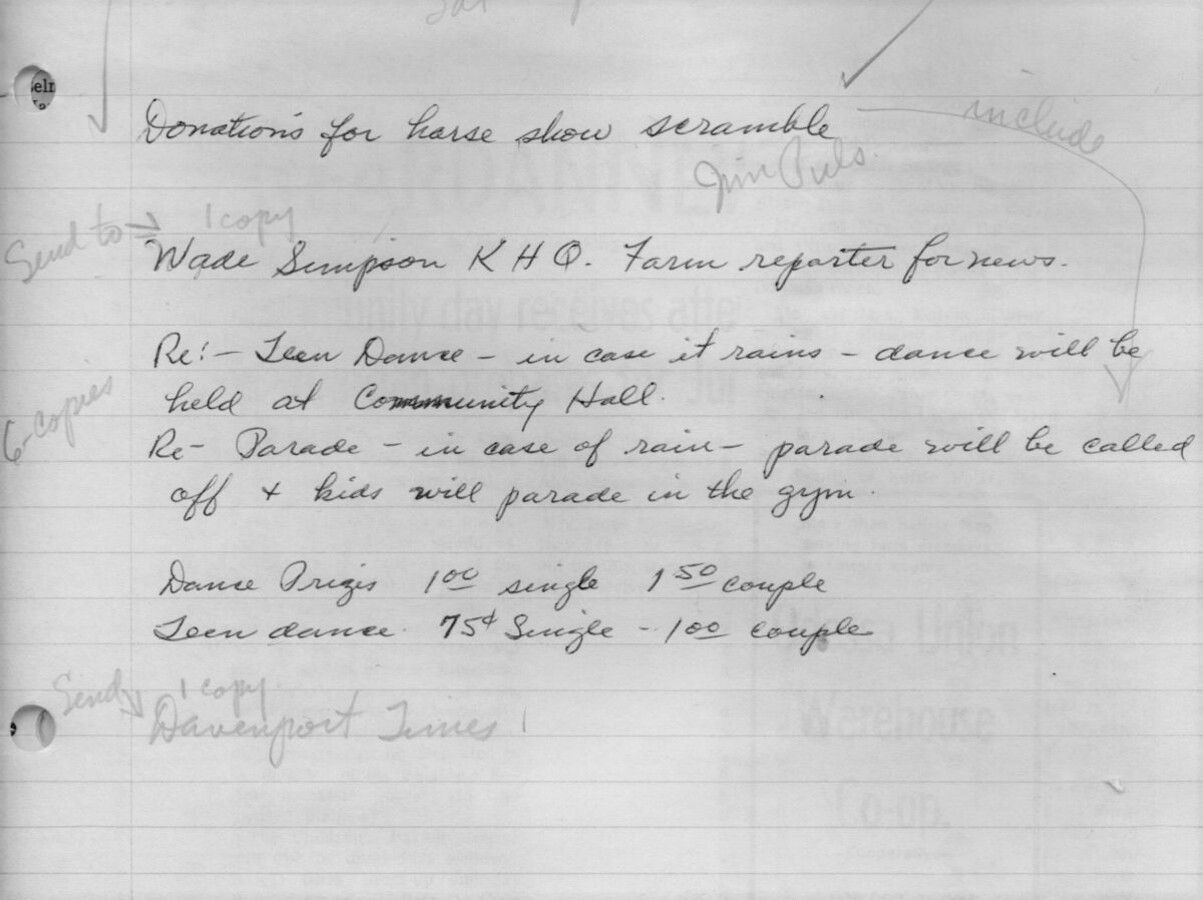 Donations for horse show scramble
include
Jim Puls.
Send to 1 copy
Wade Simpson K H Q. Farm reporter for news.
Re:- Teen Dance - in case it rains - dance will be
held at Community Hall.
6-copies
Re- Parade - in case of rain - parade will be called
off + kids will parade in the gym.
Dance Prizes 1 00 single 1 50 couple
Teen dance. 75¢ Single - 1 00 couple
Send 1 copy.
Davenport Times
unity day receives
Union
Warehouse
Co-op.